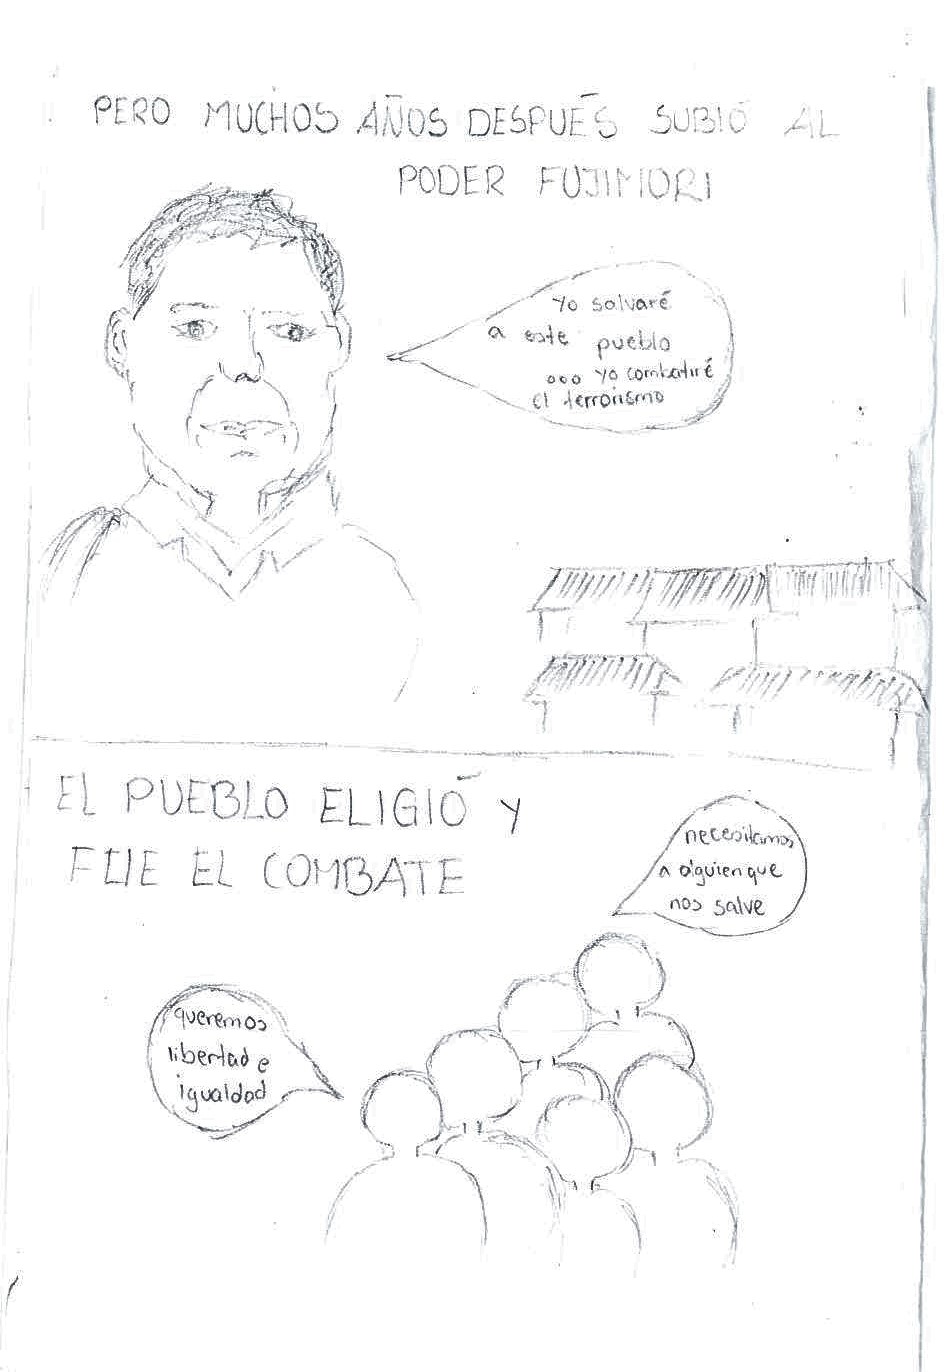 PERO MUCHOS AÑOS DESPUÉS SUBIÓ AL
PODER FUJIMORI
Yo salvaré
a este pueblo
... Yo combatiré
El terrorismo
EL PUEBLO ELIGIÓ Y
FUE EL COMBATE
necesitamos
a alguien que
nos salve
queremos
libertad e
igualdad